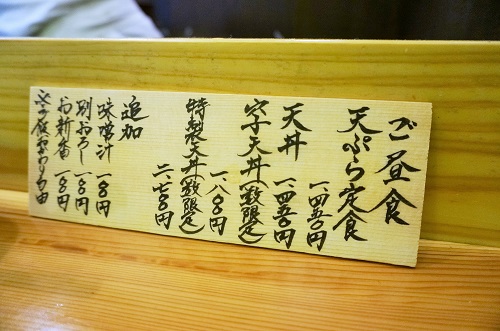 ご昼食
天ぷら定食
一、四五〇円
天丼
一、四五〇円
穴子天丼(数限定)
一、八〇〇円
特製天丼(数限定)
二、七〇〇円
追加
味噌汁 一〇〇円
別おろし 一〇〇円
お新香 一〇〇円